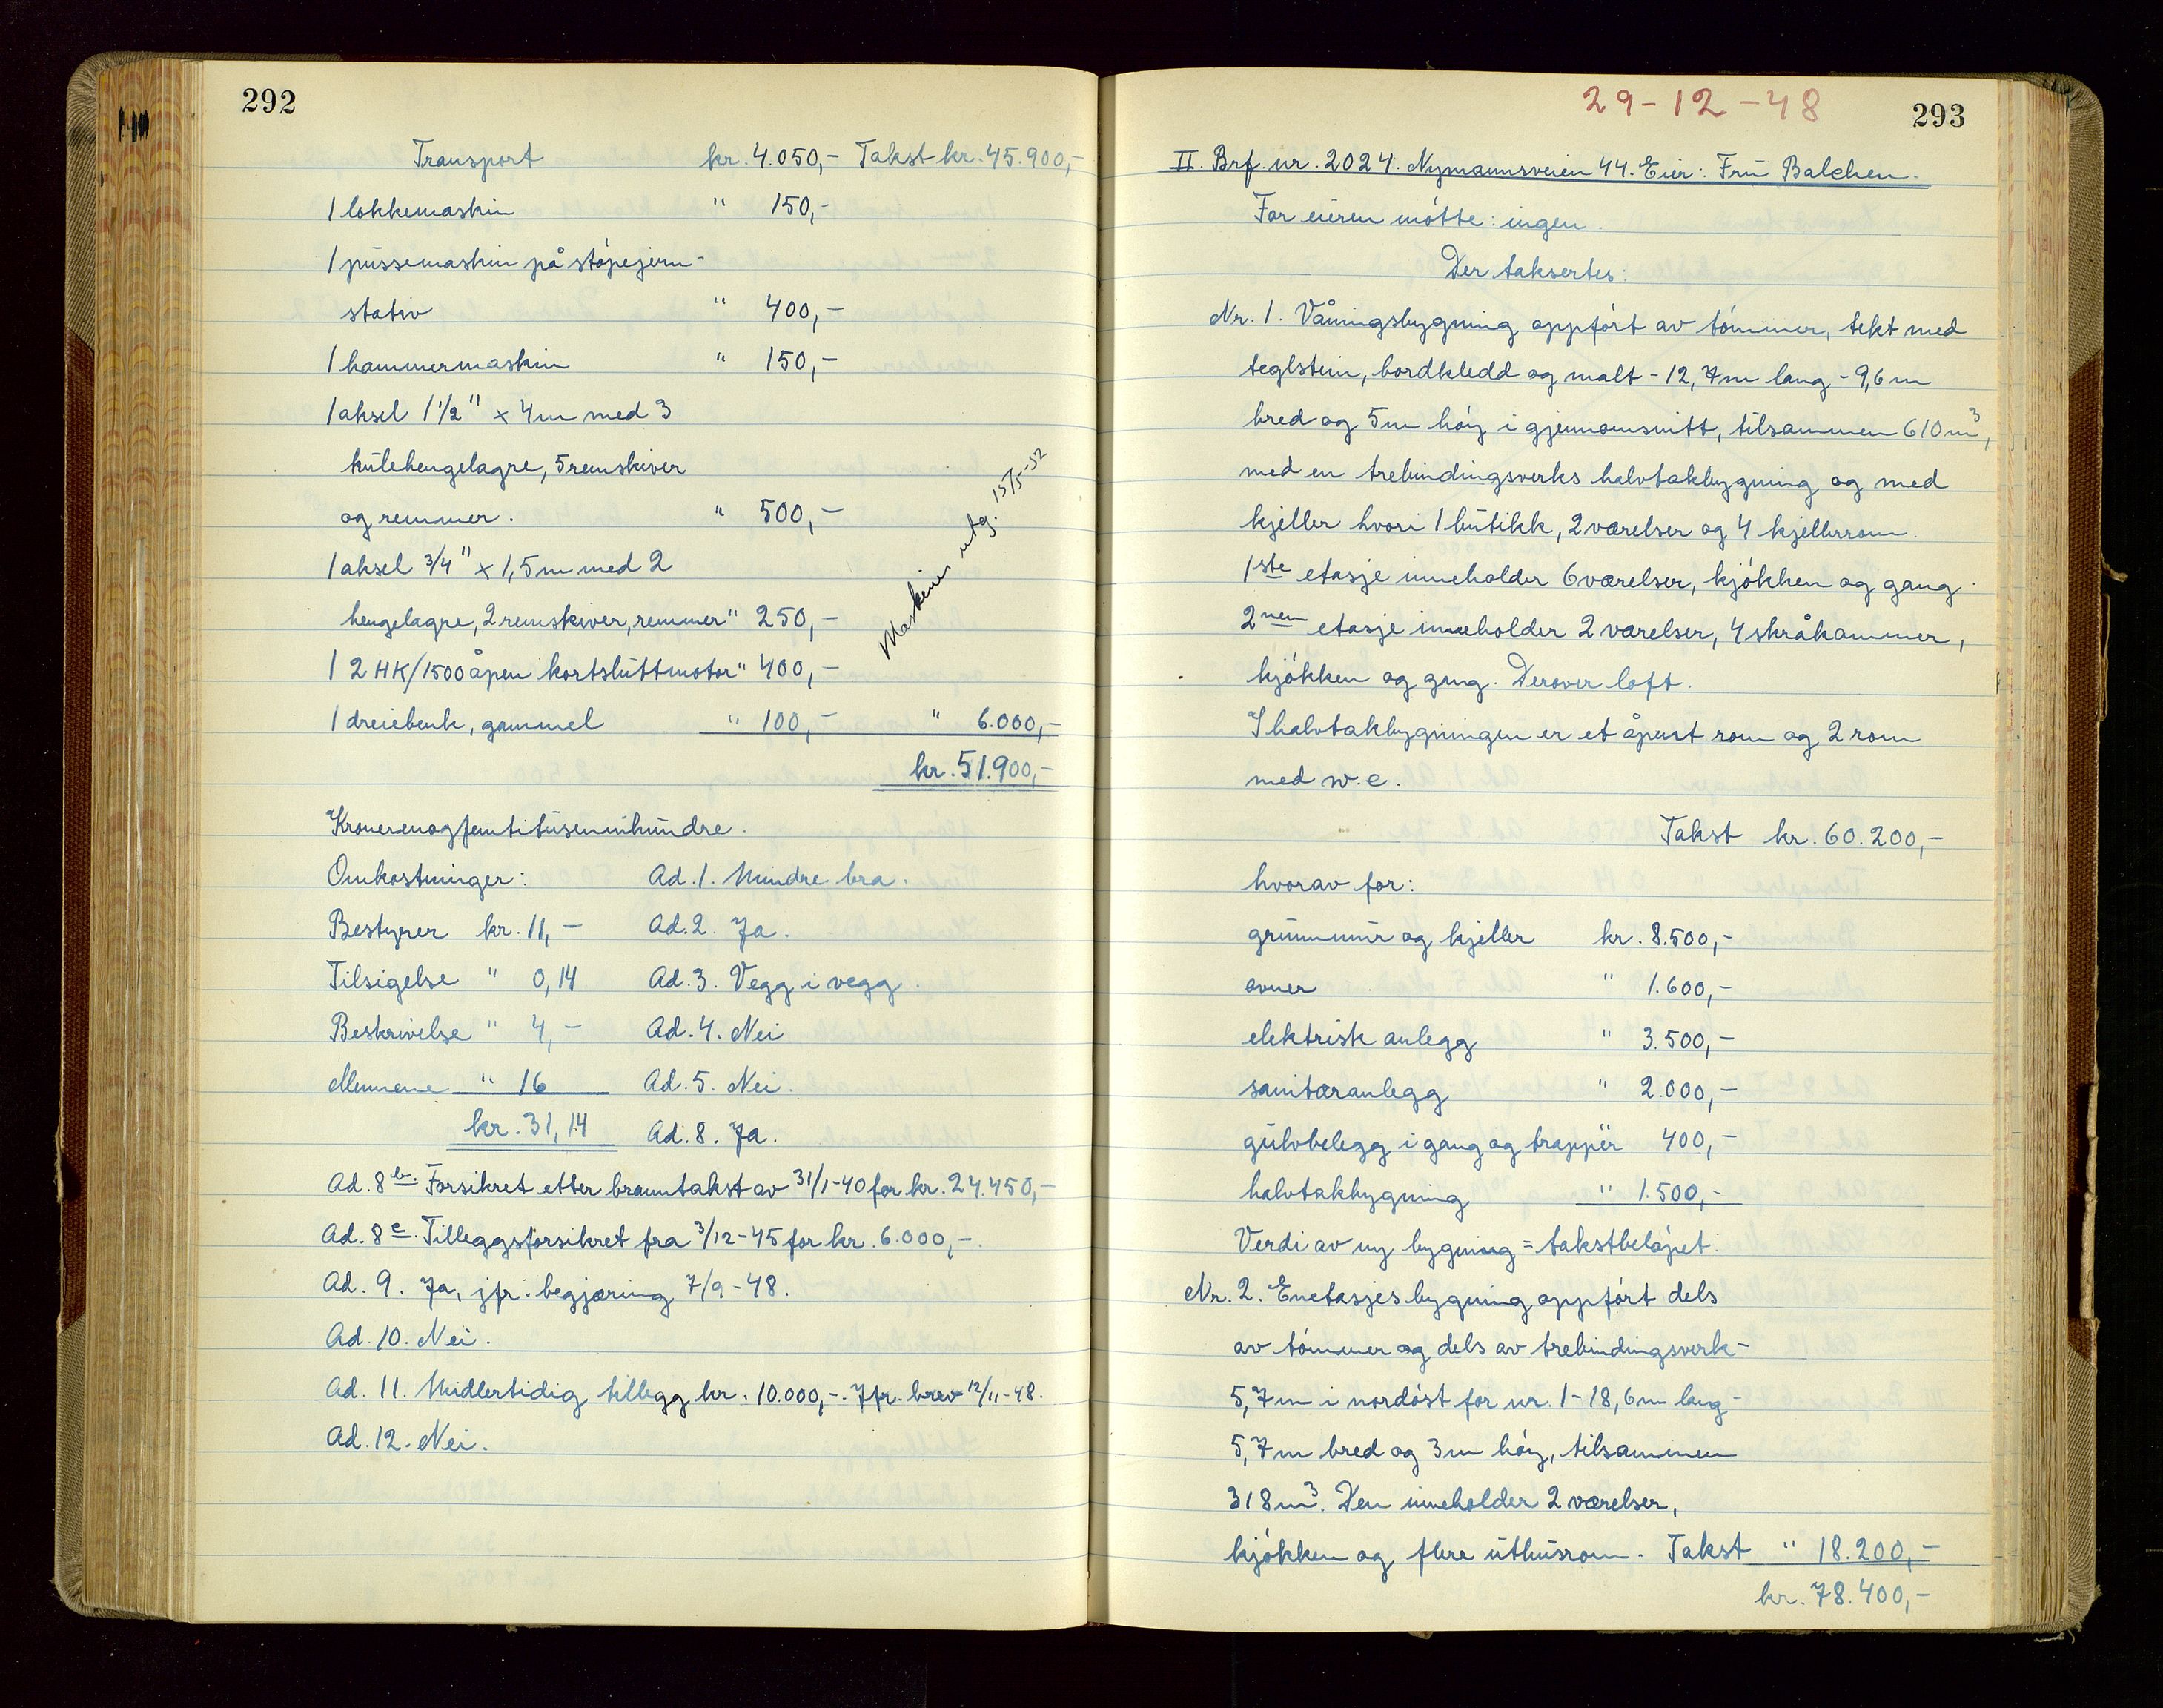 292
Transport kr. 4.050,- Takst kr. 45.900,-
1 lokkemaskin " 150,-
1 pussemaskin på støpejern-
stativ " 400,-
1 hammermaskin " 150,-
1 aksel 1 1/2" x 4m med 3
kulehengelagre, 5 remskiver
og remmer. " 500,-
1 aksel 3/4" x 1,5m med 2
hengelagre, 2 remskiver, remmer " 250,-
1 2 HK/1500 åpen kortsluttmotor " 400,-
1 dreiebenk, gammel " 100,- " 6.000,-
Maskiner utg. 15/5-52
kr. 51.900,-
Kronerenogfemtitusennihundre.
Omkostninger: Ad. 1. Mindre bra.
Bestyrer kr. 11,- Ad. 2. Ja.
Tilsigelse " 0,14 Ad. 3. Vegg i vegg.
Beskrivelse " 4,- Ad. 4. Nei
Mennene " 16 Ad. 5. Nei.
kr. 31,14 Ad. 8. Ja.
Ad. 8b. Forsikret etter branntakst av 31/1-40 for kr. 24.450,-
Ad. 8c. Tilleggsforsikret fra 3/12-45 for kr. 6.000,-.
Ad. 9. Ja, jfr. begjæring 7/9-48.
Ad. 10. Nei.
Ad. 11. Midlertidig tillegg kr. 10.000,-. Jfr. brev 12/11-48.
Ad. 12. Nei.
29-12-48
293
II. Brf. nr. 2024. Nymannsveien 44. Eier: Frú Balchen.
For eieren møtte: ingen.
Der taksertes:
Nr. 1. Våningsbygning oppført av tømmer, tekt med
teglstein, bordkledd og malt - 12,7m lang - 9,6m
bred og 5m høy i gjennomsnitt, tilsammen 610m³,
med en trebindingsverks halvtakbygning og med
kjeller hvori 1 butikk, 2 værelser og 4 kjellerrom.
1ste etasje inneholder 6 værelser, kjøkken og gang.
2nen etasje inneholder 2 værelser, 4 skråkammer,
kjøkken og gang. Derover loft.
I halvtakbygningen er et åpent rom og 2 rom
med w.c.
Takst kr. 60.200,-
hvorav for:
grunnmur og kjeller kr. 8.500,-
ovner " 1.600,-
elektrisk anlegg " 3.500,-
sanitæranlegg " 2.000,-
gulvbelegg i gang og trapper 400,-
halvtakbygning " 1.500,-
Verdi av ny bygning = takstbeløpet.
Nr. 2. Enetasjes bygning oppført dels
av tømmer og dels av trebindingsverk -
5,7m i nordøst for nr. 1 - 18,6m lang -
5,7m bred og 3m høy, tilsammen
318m³. Den inneholder 2 værelser,
kjøkken og flere uthusrom. Takst " 18.200,-
kr. 78.400,-